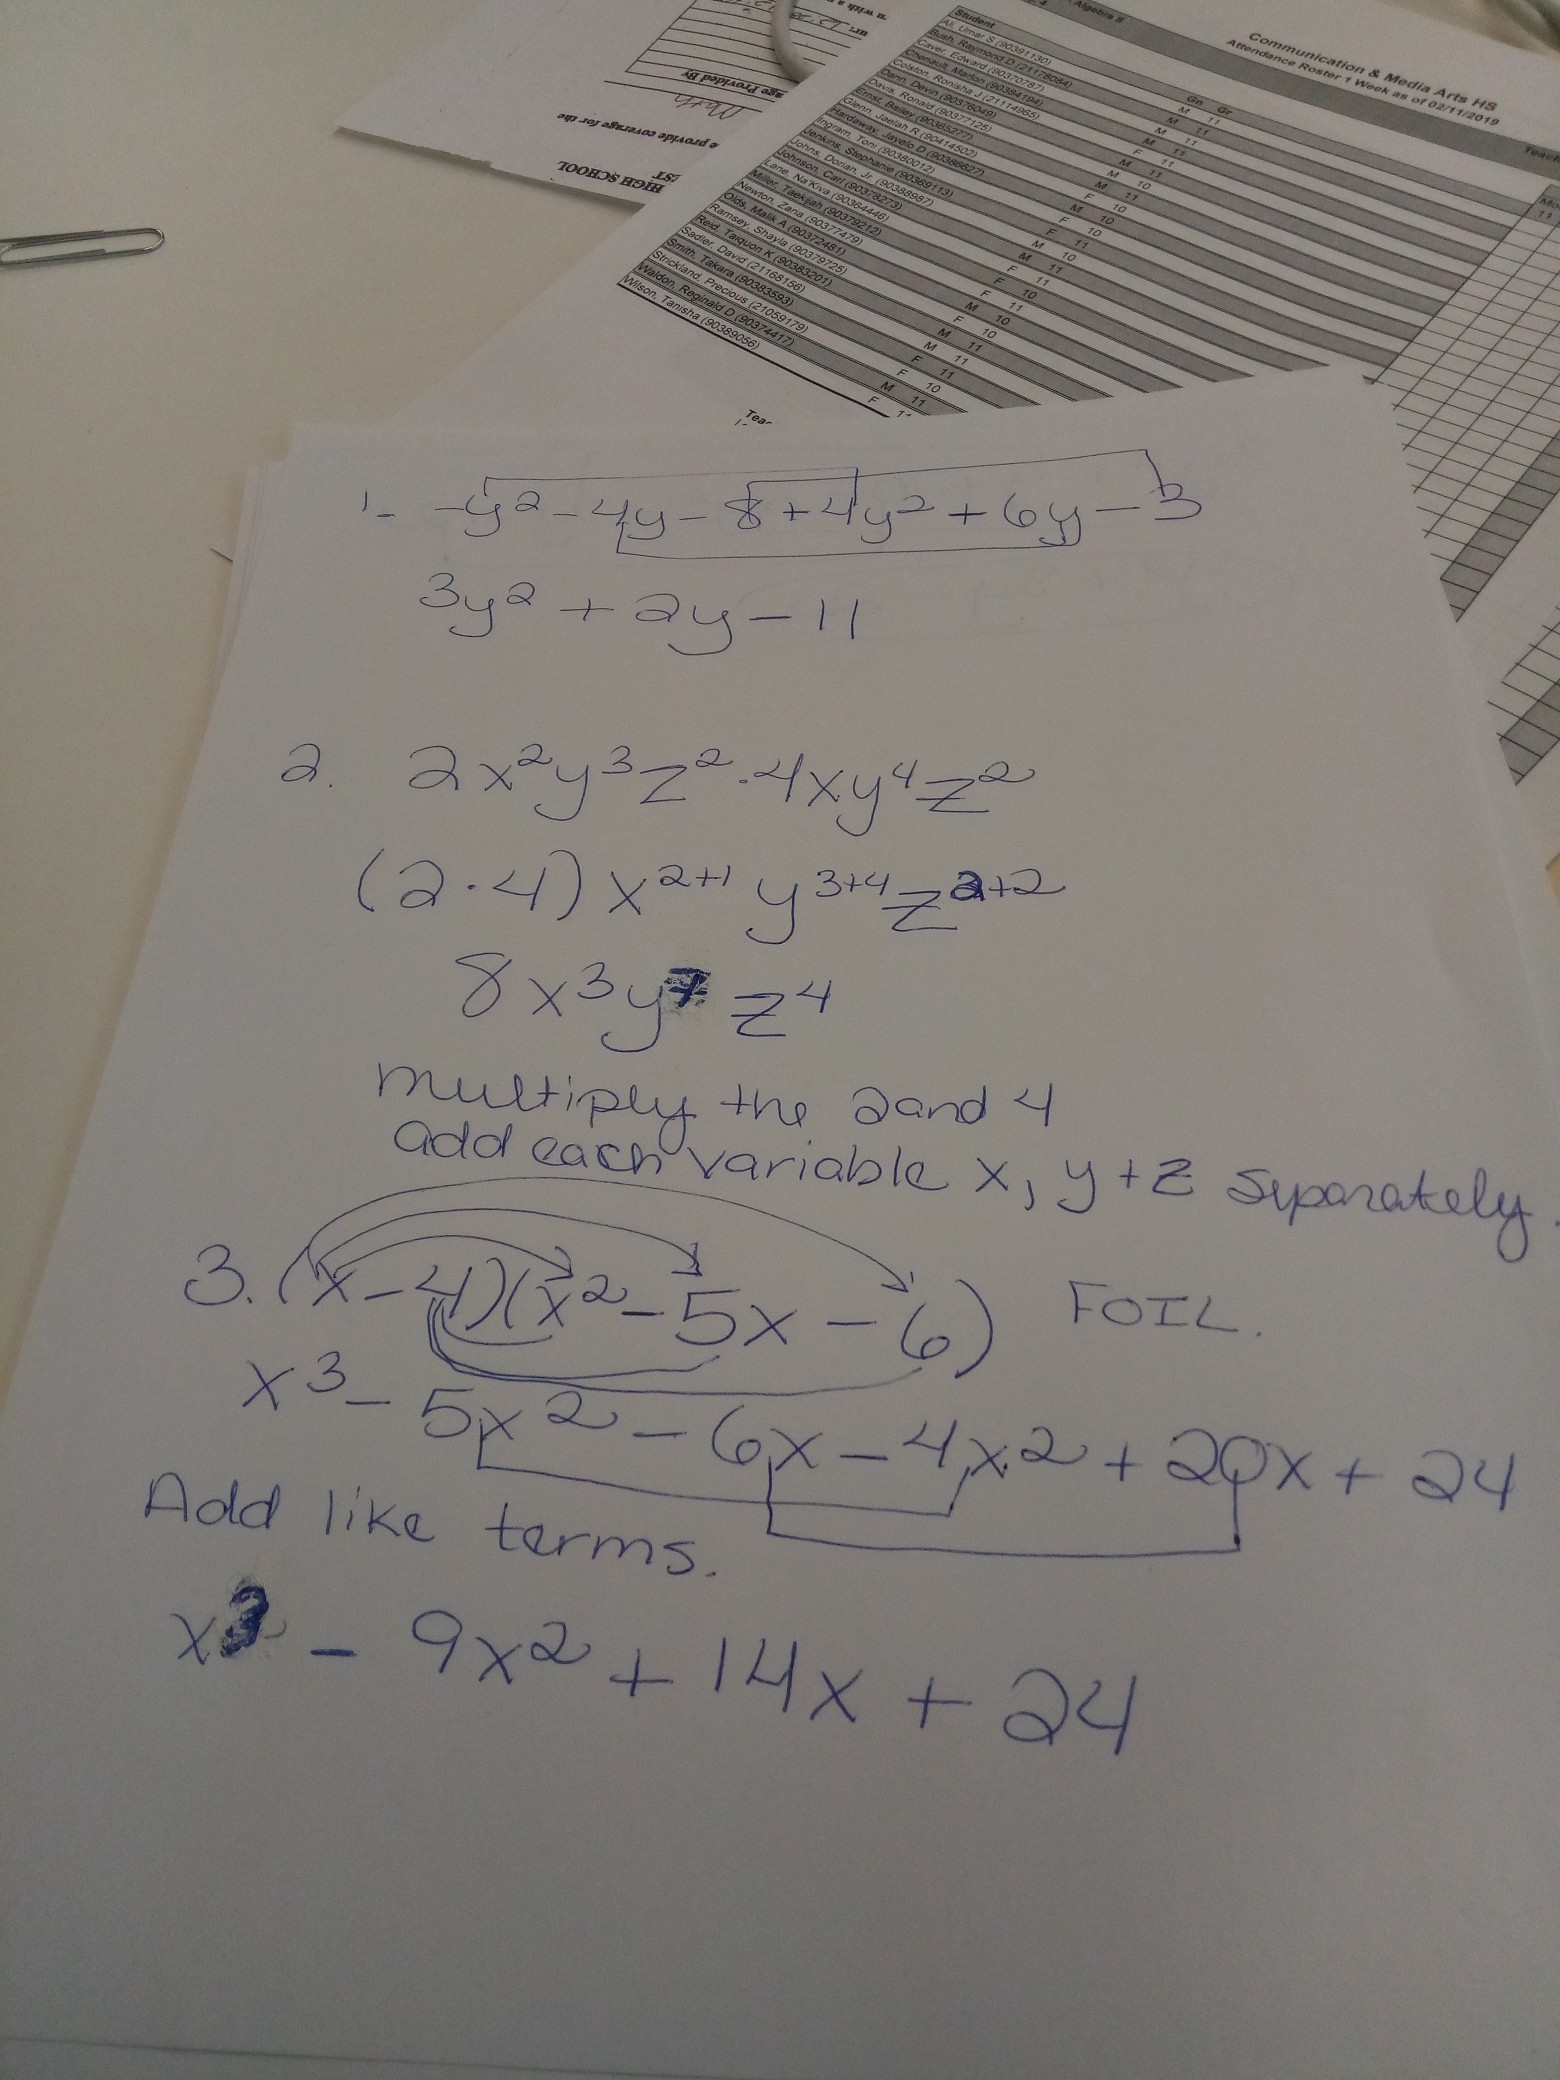 Algebra II
Communication & Media Arts HS
Attendance Roster 1 Week as of 02/11/2019
Student
Gn Gr
Ali, Umar S (90391130) M 11
Bush, Raymond D (21178084) M 11
Caver, Edward (90370787) M 11
Chenault, Marlon (90384194) M 11
Colston, Ronisha J (21114965) F 11
Dann, Devin (90378049) M 11
Davis, Ronald (90377125) M 10
Ernst, Bailey (90365277) M 11
Glenn, Jaelah R (90414502) F 10
Hardaway, Jayelo D (90386827) M 10
Ingram, Toni (90380012) F 10
Jenkins, Stephanie (90369113) F 11
Johns, Donan, Jr. (90388987) M 10
Johnson, Carl (90378273) M 11
Lane, Na'Kiva (90364446) F 11
Miller, Taekijah (90379212) F 10
Newton, Zana (90377479) F 11
Olds, Malik A (90372481) M 10
Ramsey, Shayla (90379725) F 10
Reid, Taiquon K (90383201) M 11
Sadler, David (21168156) M 11
Smith, Takara (90383593) F 11
Strickland, Precious (21059179) F 10
Waldon, Reginald D (90374417) M 11
Wilson, Tanisha (90389056) F
HIGH SCHOOL
provide coverage for the
Math
age Provided By
1- -y²-4y-8+4y²+6y-3
3y²+2y-11
2. 2x²y³z²·4xy⁴z²
(2·4)x²⁺¹y³⁺⁴z²⁺²
8x³y⁷z⁴
multiply the 2 and 4
add each variable x, y + z syparately.
3. (x-4)(x²-5x-6) FOIL.
x³-5x²-6x-4x²+20x+24
Add like terms.
x³-9x²+14x+24